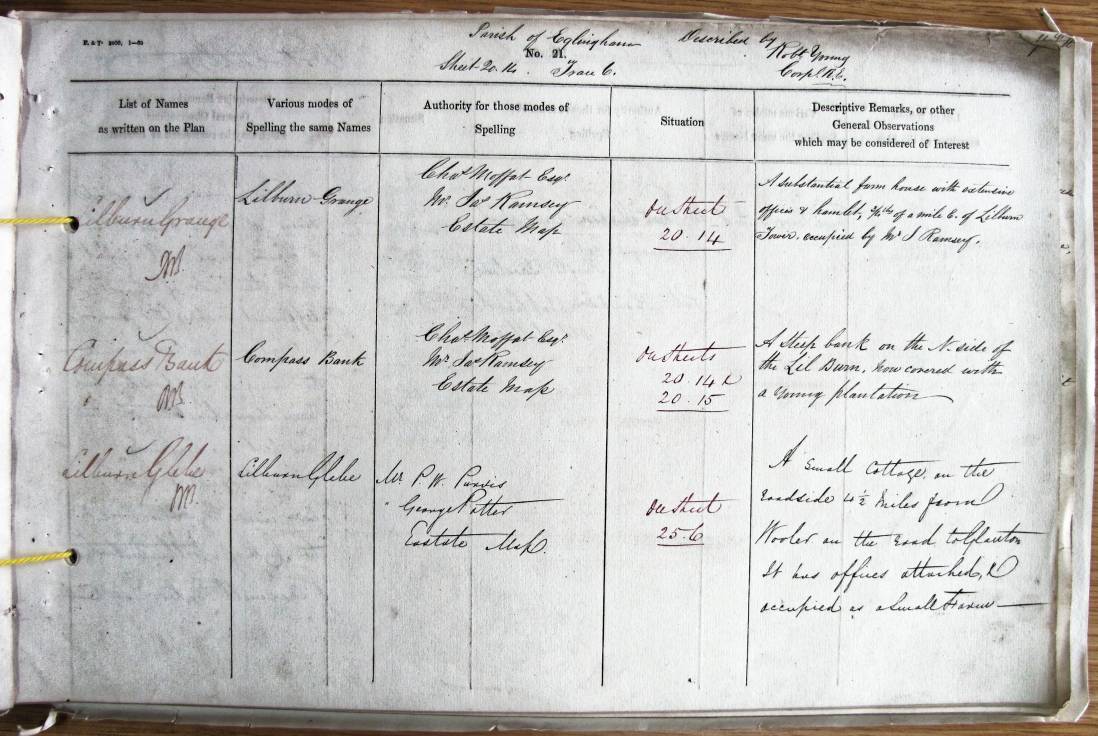 Parish of Eglingham Described by
No. 21.
Robt Young
Sheet 20.14. Trace 6. Corpl. R.E.
List of Names
as written on the Plan
Various modes of
Spelling the same Names
Authority for those modes of
Spelling
Situation
Descriptive Remarks, or other
General Observations
which may be considered of Interest
Lilburn Grange
Lilburn Grange
Chas Moffat Esqr
Mr. Jas Ramsey
Estate Map
On Sheet
20.14
A substantial farm house with extensive
offices & hamlet, of a mile E. of Lilburn
Tower, occupied by Mr J Ramsey.
Compass Bank
Compass Bank
Chas Moffat Esqr
Mr Jas Ramsey
Estate Map
On Sheets
20.14 &
20.15
A Steep bank on the N. side of
the Lil Burn, now covered with
a young plantation
Lilburn Glebe
Lilburn Glebe
Mr P. W. Purvis
" George Potter
Eastate Map.
On Sheet
25.6
A Small Cottage, on the
roadside 4½ Miles from
Wooler on the road to Glanton
It has offices attached, &
occupied as a Small Farm